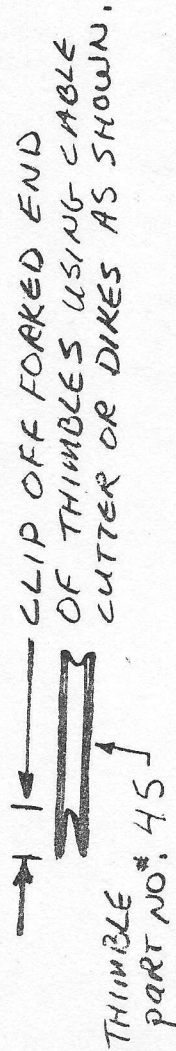 CLIP OFF FORKED END
OF THIMBLES USING CABLE
CUTTER OR DIKES AS SHOWN.
THIMBLE
PART NO#. 45